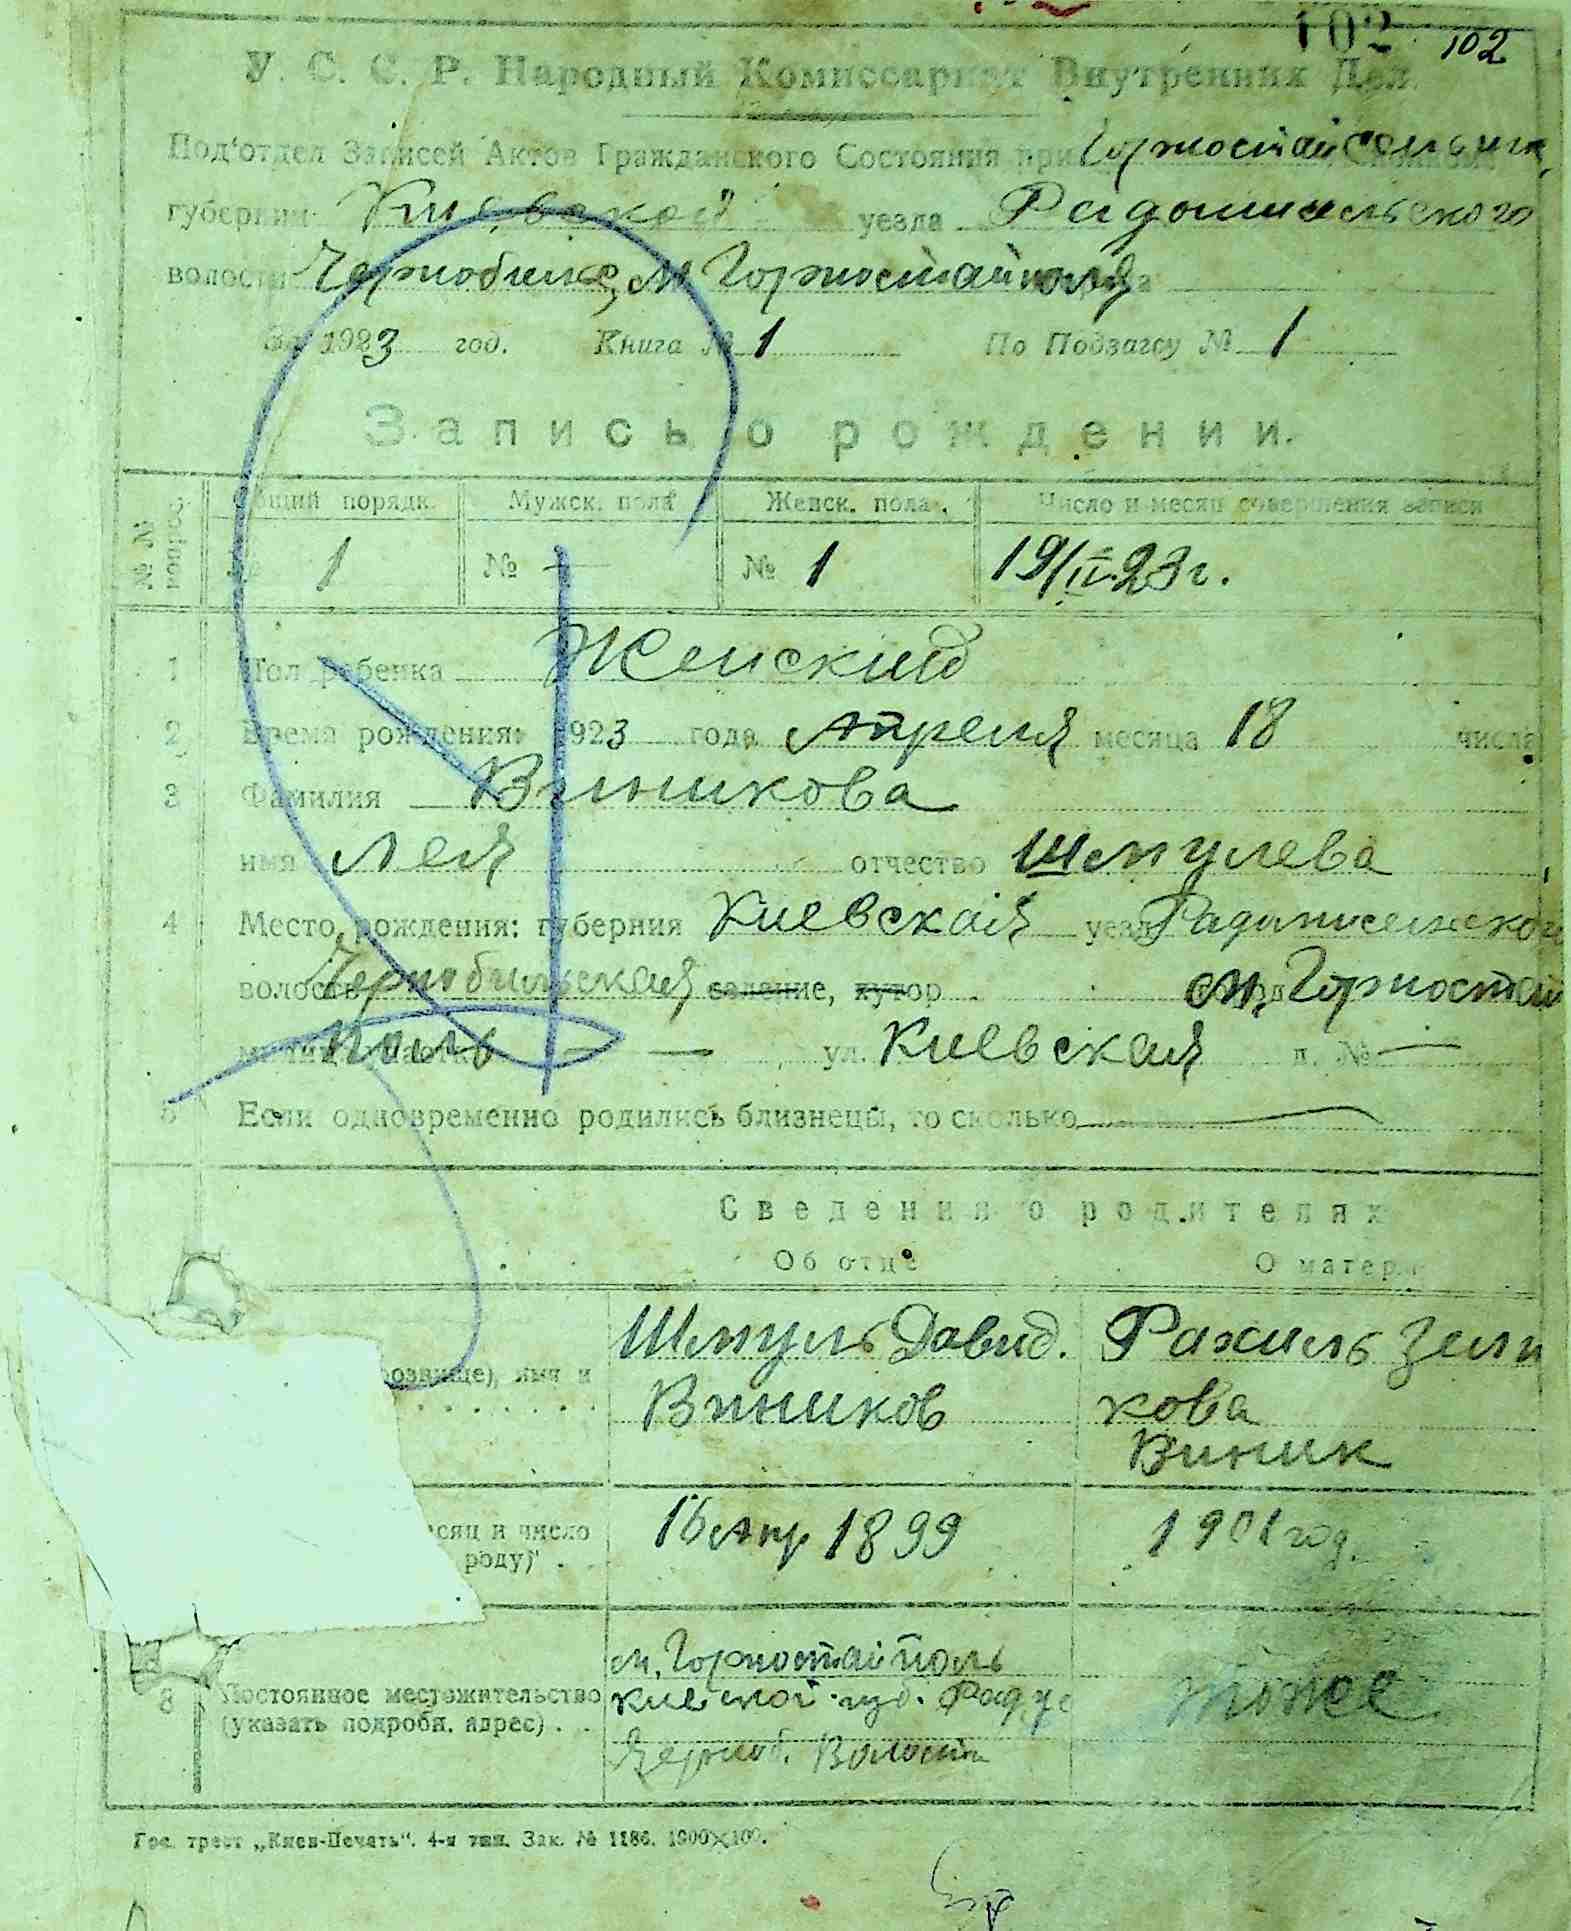 102 102
У. С. С. Р. Народный Комиссариат Внутренних Дел.
Под'отдел Записей Актов Гражданского Состояния при
губернии Киевской уезда Радомисльского
волости м Горностайполя
За 1923 год. Книга № 1 По Подзагсу № 1
Запись о рождении.
№ № вопрос. Общий порядк. Мужск. пола Женск. пола Число и месяц совершения записи
№ 1 № — № 1 19/IV 23 г.
1 Пол ребенка Женский
2 Время рождения: 1923 года Апреля месяца 18 числа
3 Фамилия Виникова
имя Лея отчество Шмулева
4 Место рождения: губерния Киевская уезд
волость Чернобильская селение, хутор м. Горностай
поль — — ул. Киевская д. № —
5 Если одновременно родились близнецы, то сколько —
Сведения о родителях
Об отце О матери
Шмуль Давид. Рахиль Зели
розвище), имя и
Виников кова
Виник
сяц и число 16 Апр 1899 1901 год.
роду) .
м. Горностайполь
8 Постоянное местожительство Киевской губ. Рад. уе тоже
(указать подробн. адрес) . .
Черноб. Волости
Гос. трест „Киев-Печать". 4-я тип. Зак. № 1186. 1900×100.